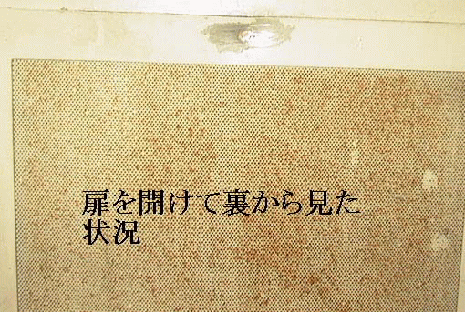 扉を開けて裏から見た
状況